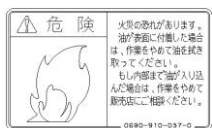 危険
火災の恐れがあります。
油が表面に付着した場合
は、作業をやめて油を拭き
取ってください。
もし内部まで油が入り込
んだ場合は、作業をやめて
販売店にご相談ください。
0690-910-037-0